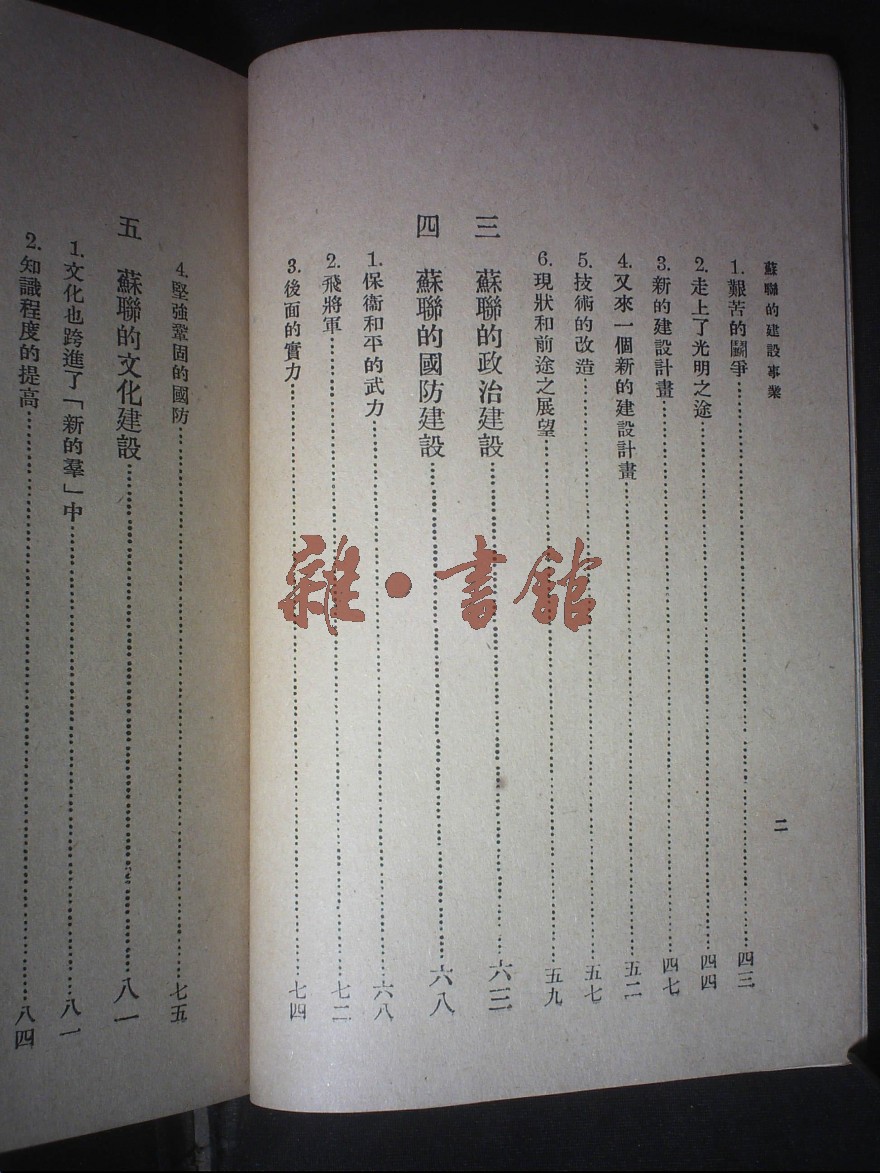 蘇聯的建設事業
二
1. 艱苦的鬭爭……四三
2. 走上了光明之途……四四
3. 新的建設計畫……四七
4. 又來一個新的建設計畫……五二
5. 技術的改造……五七
6. 現狀和前途之展望……五九
三 蘇聯的政治建設……六三
四 蘇聯的國防建設……六八
1. 保衞和平的武力……六八
2. 飛將軍……七二
3. 後面的實力……七四
4. 堅強鞏固的國防……七五
五 蘇聯的文化建設……八一
1. 文化也跨進了「新的羣」中……八一
2. 知識程度的提高……八四
雜·書館